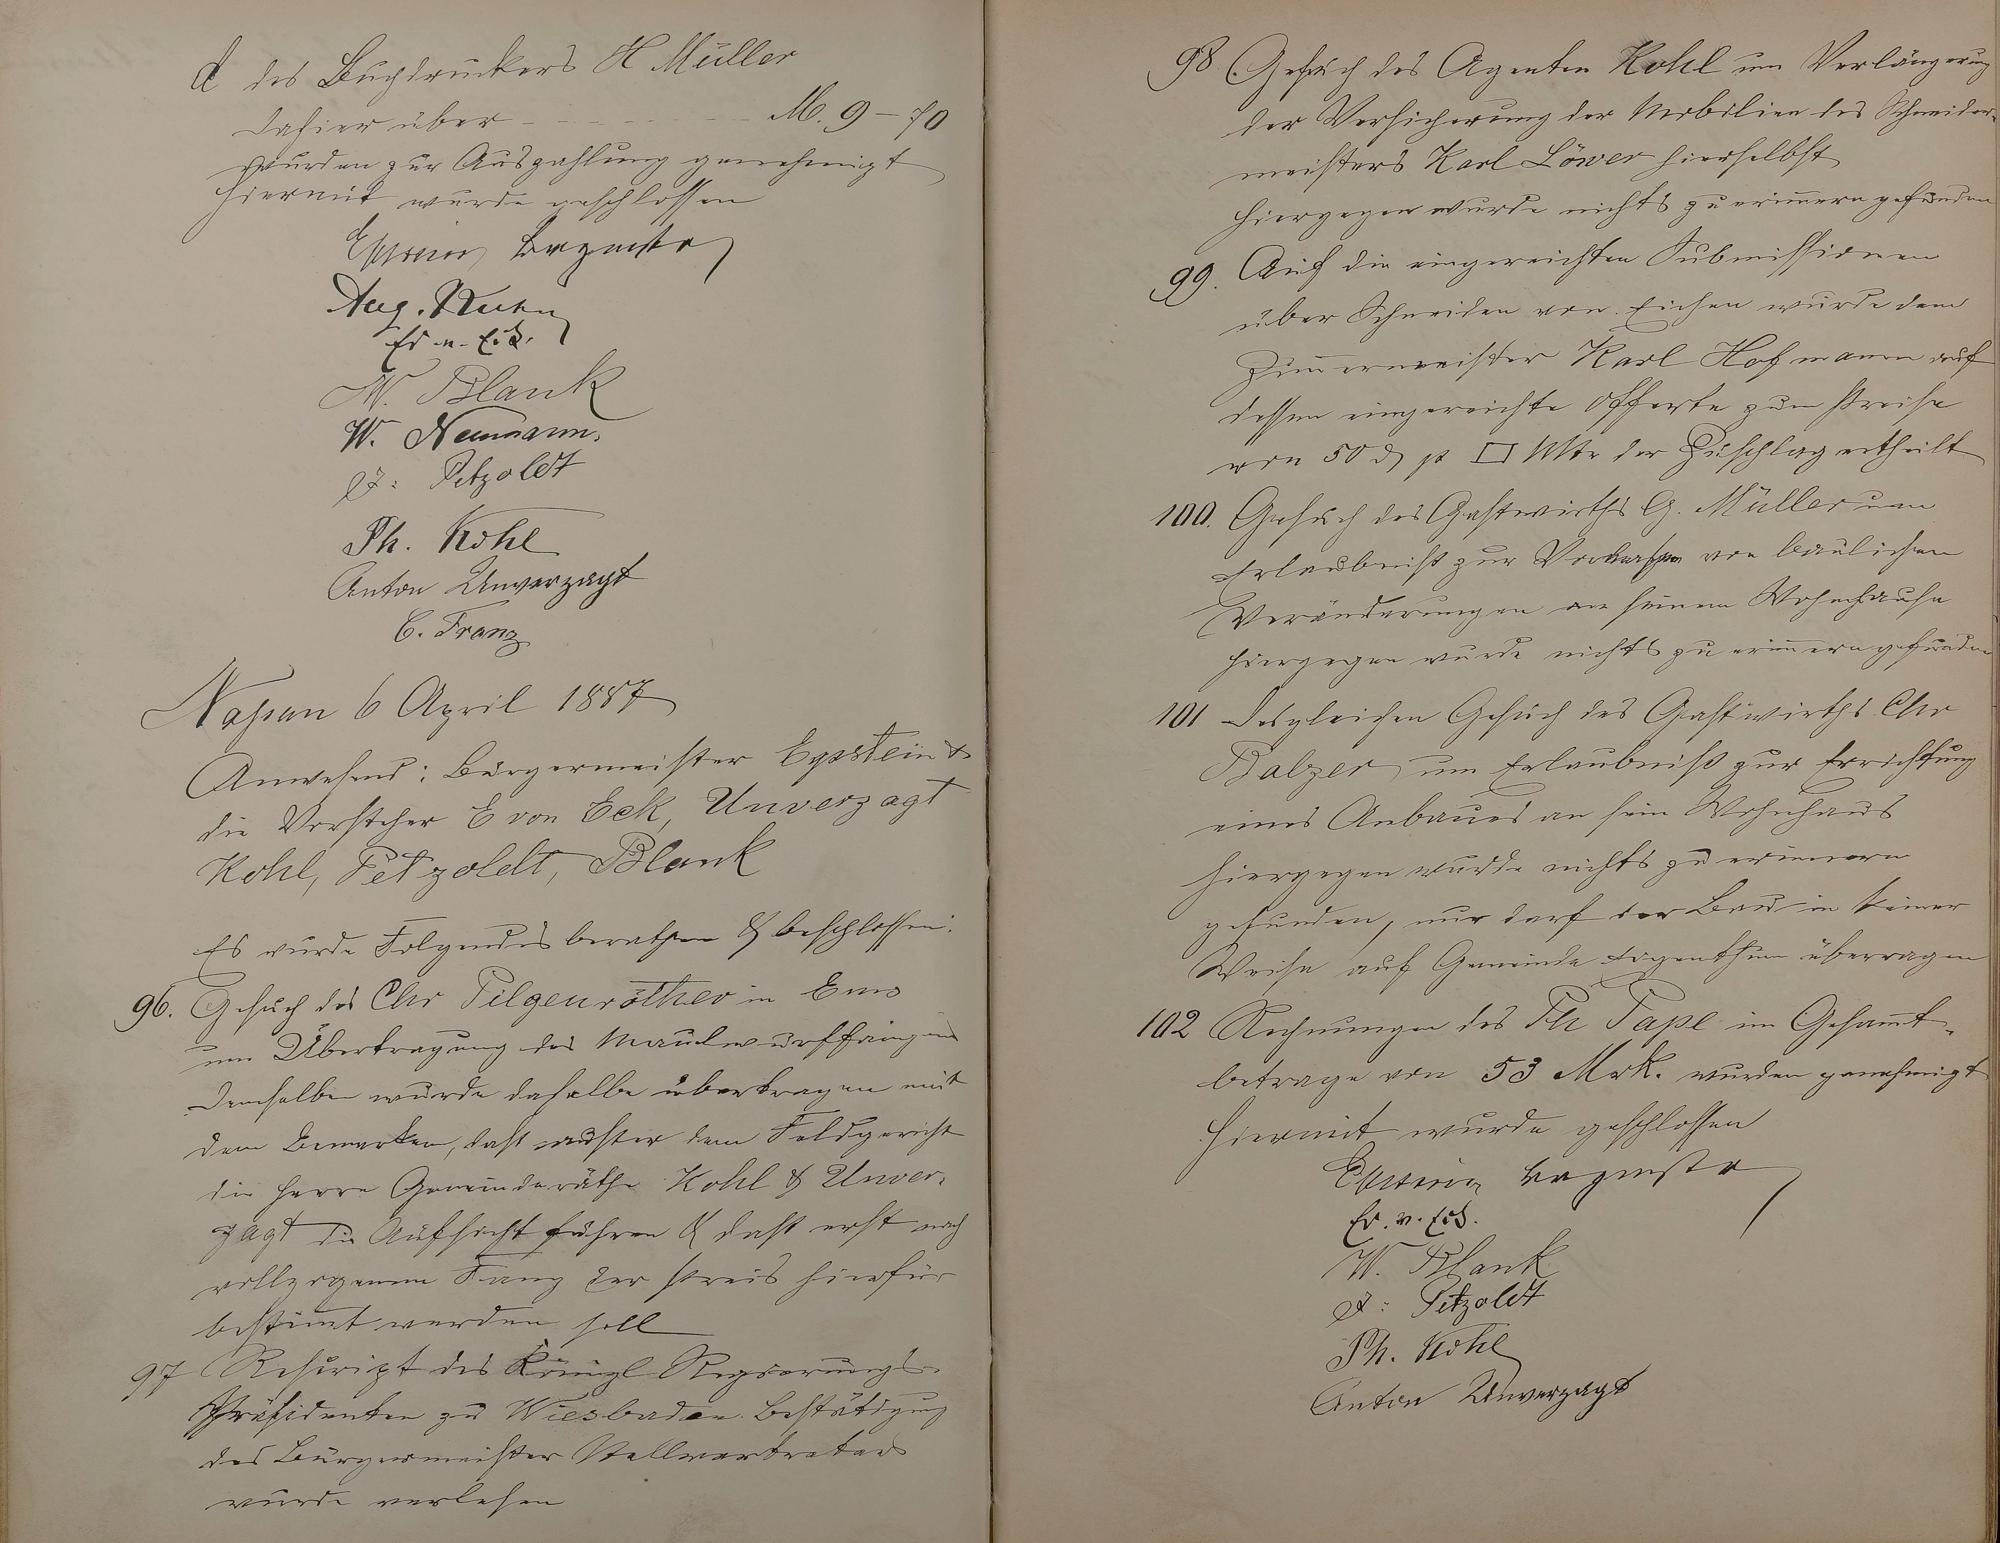 d des Buchdruckers H Müller
dahier über - - - - - - - M. 9 – 70
wurden zur Auszahlung genehmigt
Hiermit wurde geschlossen
Epstein, Bürgmstr
Aug. Kuhn
Ed. v. Eck.
W. Blank
W. Neumann.
Petzoldt
Ph. Kohl
Anton Unverzagt
C. Franz
Nassau 6 April 1887
Anwesend: Bürgermeister Epstein &
die Vorsteher E von Eck, Unverzagt
Kohl, Petzoldt, Blank
Es wurde Folgendes berathen & beschlossen:
96. Gesuch des Chr Pilgenröther in Ems
um Übertragung des Maulwurffangens
Demselben wurde dasselbe übertragen mit
dem Bemerken, daß außer dem Feldgericht
die Herrn Gemeinderäthe Kohl & Unver-
zagt die Aufsicht führen & daß erst nach
vollzogenem Fang der Preis hierfür
bestimmt werden soll
97 Rescript des Königl Regierungs-
Präsidenten zu Wiesbaden Bestätigung
des Bürgermeister Stellvertreters
wurde verlesen
98 Gesuch des Agenten Kohl um Verlängerung
der Versicherung der Mobilien des Schneider-
meisters Karl Löwer hierselbst
Hiergegen wurde nichts zu erinnern gefunden
99. Auf die eingereichten Submissionen
über Schneiden von Eichen wurde dem
Zimmermeister Karl Hofmann auf
dessen eingereichte Offerte zum Preise
von 50 ₰ p □ Mtr der Zuschlag ertheilt
100. Gesuch des Gastwirths G. Müller um
Erlaubniß zur Vornahme von baulichen
Veränderungen an seinem Wohnhause
Hiergegen wurde nichts zu erinnern gefunden
101 Desgleichen Gesuch des Gastwirths Chr
Balzer um Erlaubniß zur Errichtung
eines Anbaues an sein Wohnhaus
Hiergegen wurde nichts zu erinnern
gefunden, nur darf der Bau in keiner
Weise auf Gemeinde Eigenthum überragen
102 Rechnungen des Ph Pape im Gesamt-
betrage von 53 Mrk. wurden genehmigt
Hiermit wurde geschlossen
Epstein, Bürgmstr
Ed. v. Eck.
W. Blank
Petzoldt
Ph. Kohl
Anton Unverzagt